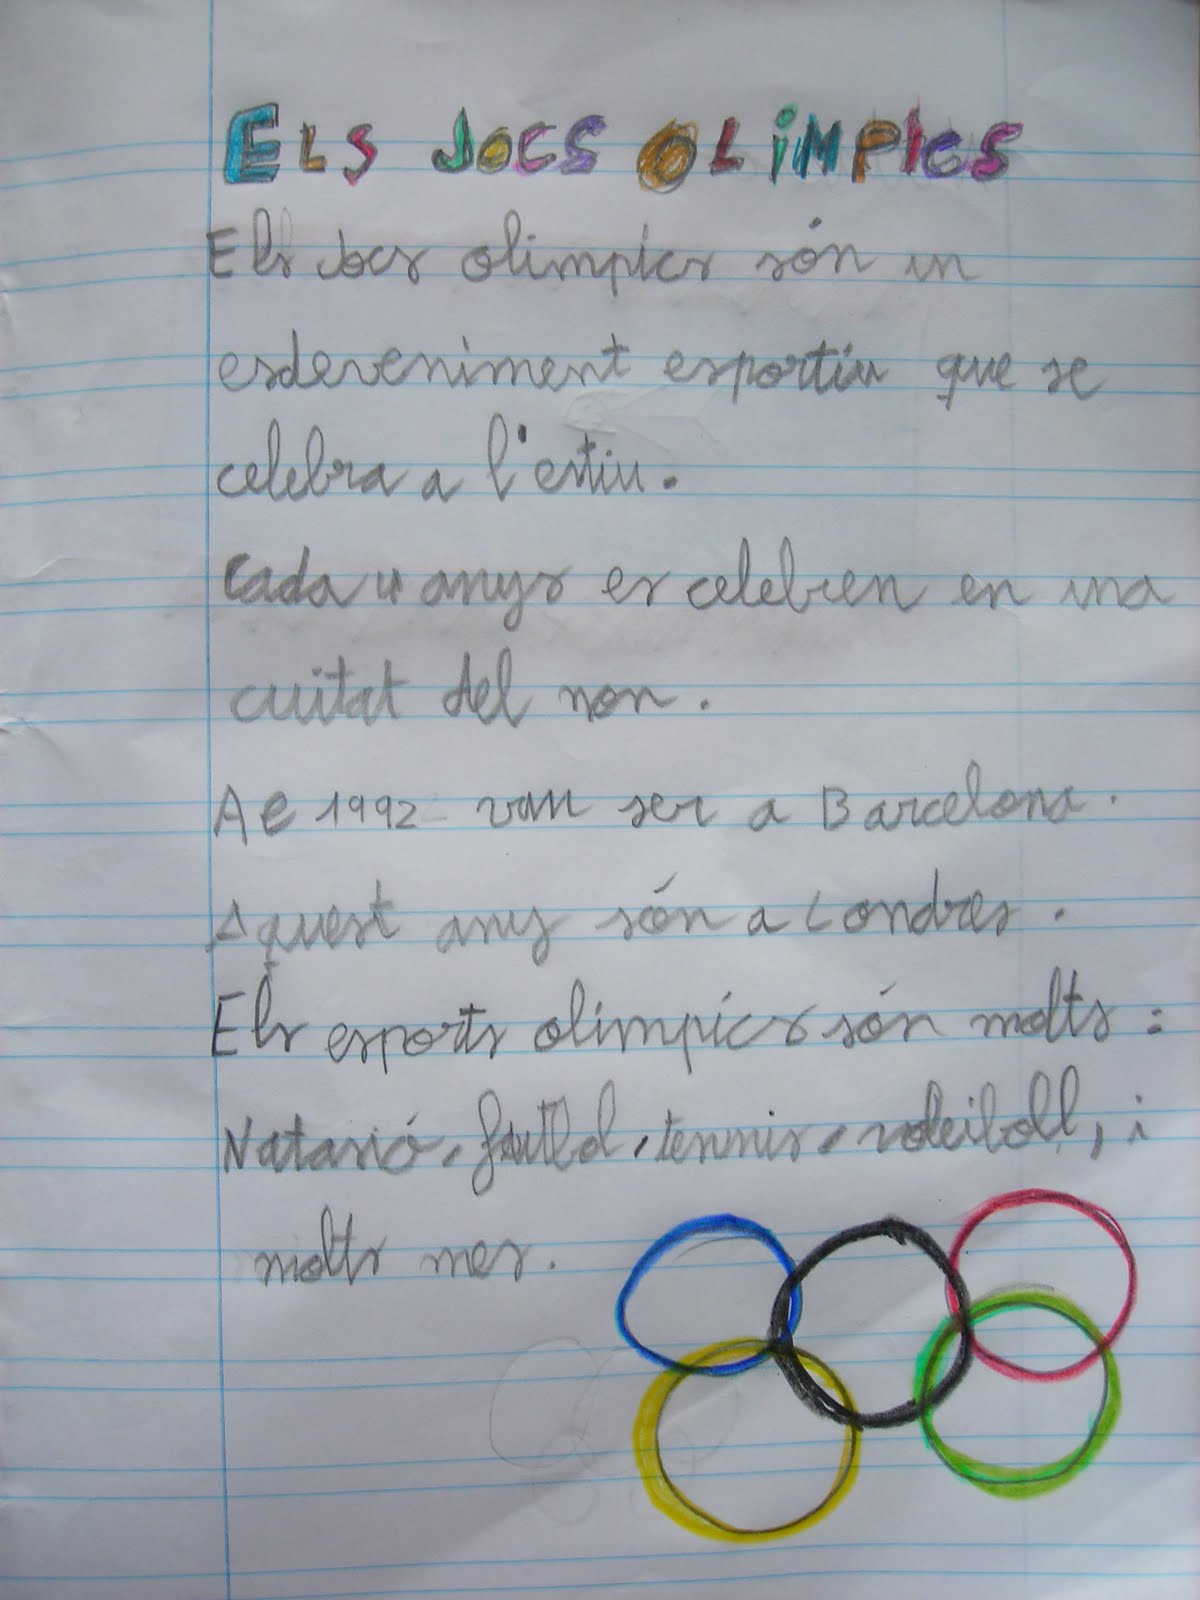 ELS JOCS OLiMPICS
Els Jocs olimpics són un
esdeveniment esportiu que se
celebra a l'estiu.
Cada 4 anys es celebren en una
cuitat del mon.
Al 1992 van ser a Barcelona.
Aquest any són a Londres.
Els esports olimpics són molts:
Natasió, futbol, tennis, voleiboll, i
molts mes.